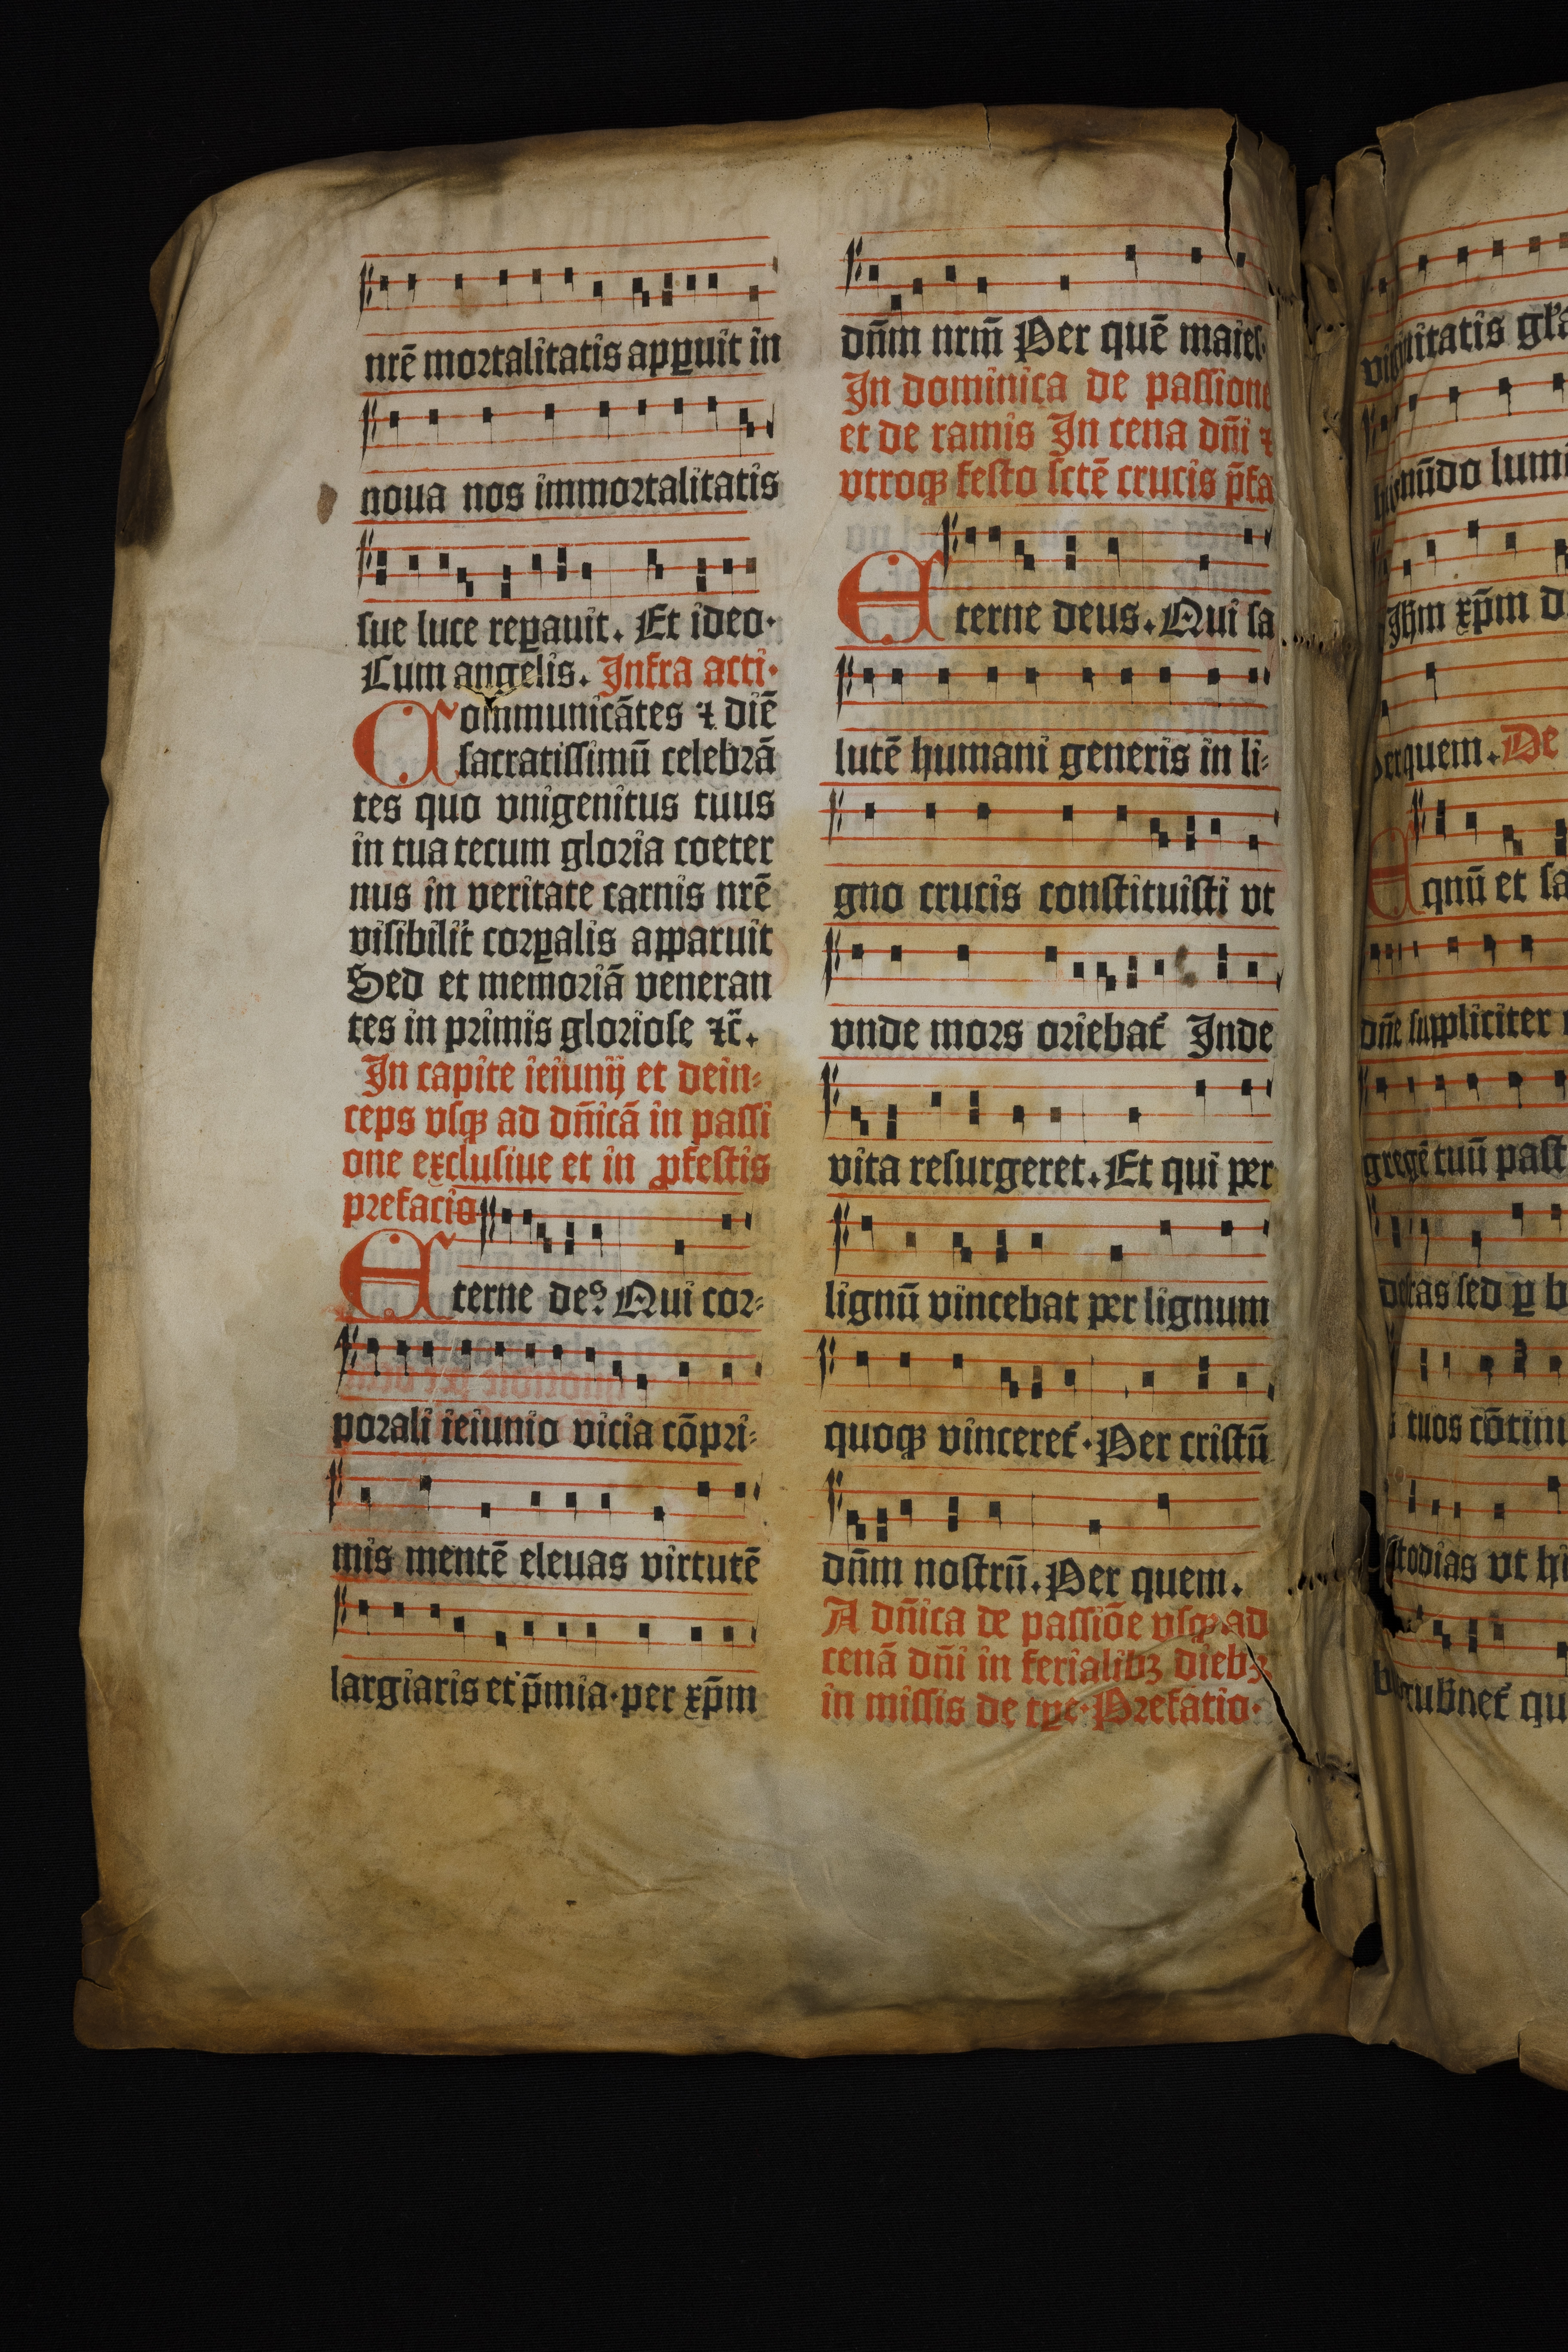 nrē mortalitatis apꝑuit in
noua nos immortalitatis
sue luce reꝑauit. Et ideo·
Cum angelis. Infra acti·
Communicātes ⁊ diē
sacratissimū celebrā
tes quo vnigenitus tuus
in tua tecum gloria coeter
nus in veritate carnis nrē
visibilit̄ corꝑalis apparuit
Sed et memoriā veneran
tes in primis gloriose ⁊c̄.
In capite ieiunij et dein⸗
ceps vsqꝫ ad dn̄icā in passi
one exclusiue et in ꝓfestis
prefacio
Eterne deꝰ. Qui cor⸗
porali ieiunio vicia cōpri⸗
mis mentē eleuas virtutē
largiaris et p̄mia·per xp̄m
dn̄m nrm̄ Per quē maies
In dominica de passione
et de ramis In cena dn̄i ⁊
vtroqꝫ festo sctē crucis p̄fa
Eterne deus. Qui sa
lutē humani generis in li⸗
gno crucis constituisti vt
vnde mors oriebat̄ Inde
vita resurgeret. Et qui per
lignū vincebat per lignum
quoqꝫ vinceret̄·Per cristū
dn̄m nostrū. Per quem.
A dn̄ica de passiōe vsqꝫ ad
cenā dn̄i in ferialibꝫ diebꝫ
in missis de tꝑe·Prefatio·
mūdo lumi
Ihm xp̄m d
quem. De
Eqnū et sa
dn̄e suppliciter
gregē tuū past
sed ꝑ b
tuos cōtinu
vt hi
qu